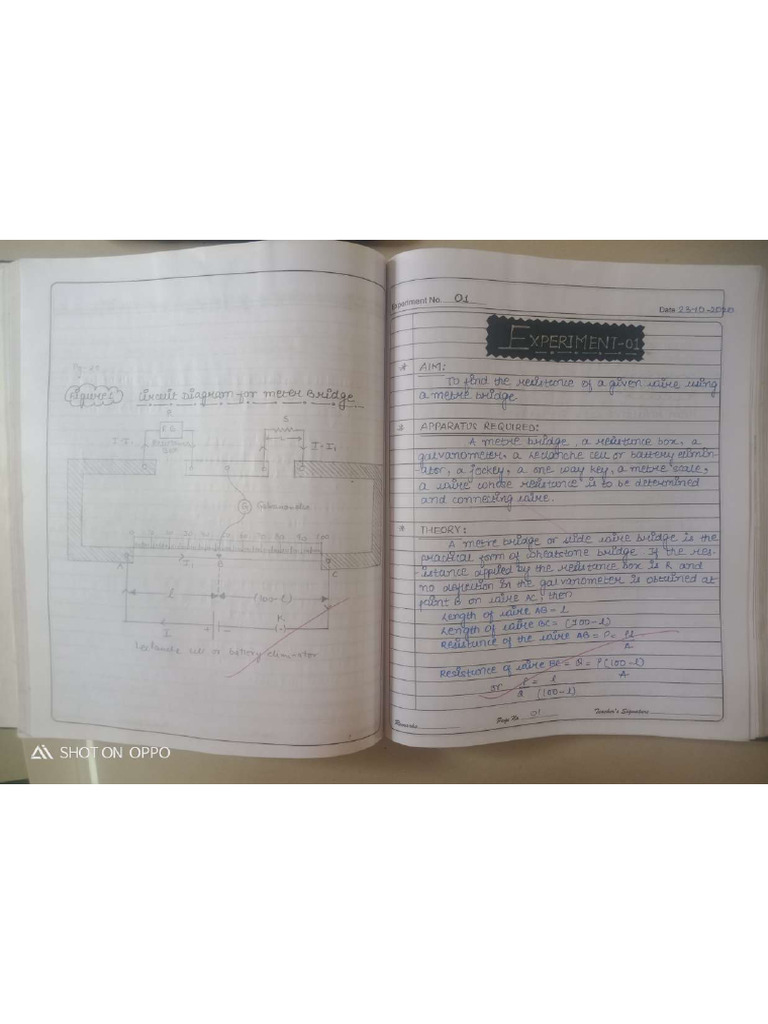 Figure:1 Circuit Diagram for meter Bridge
R
R.B.
Resistance
box
S
I-I1
Galvanometer
G
0 10 20 30 40 50 60 70 80 90 100
A
I1
B
C
l
(100-l)
I
+
-
K
(·)
Leclanche cell or battery eliminator
SHOT ON OPPO
Experiment No. 01
Date 23-10-2020
EXPERIMENT-01
* AIM:
To find the resistance of a given wire using
a metre bridge
* APPARATUS REQUIRED:
A metre bridge, a resistance box, a
galvanometer, a leclanche cell or battery elimin-
ator, a jockey, a one way key, a metre scale,
a wire whose resistance is to be determined
and connecting wire.
* THEORY:
A metre bridge or slide wire bridge is the
practical form of wheatstone bridge If the res-
-istance applied by the resistance box is R and
no deflection in the galvanometer is obtained at
point B on wire AC, then
Length of wire AB = l
Length of wire BC = (100-l)
Resistance of the wire AB = P = ρl/A
Resistance of wire BC = Q = ρ(100-l)/A
or P/Q = l/(100-l)
Remarks
Page No. 01
Teacher's Signature